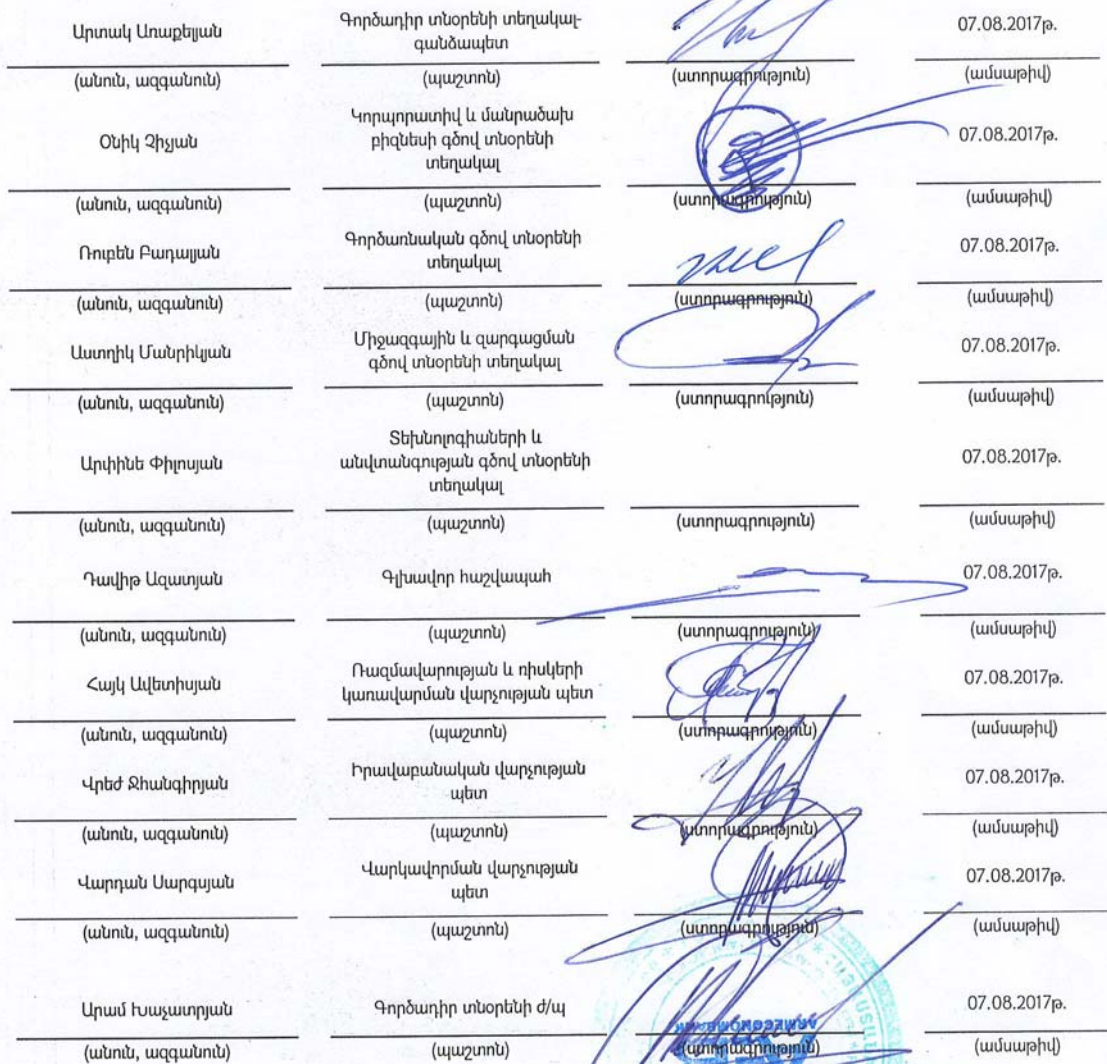 Արտակ Առաքելյան
Գործադիր տնօրենի տեղակալ-
գանձապետ
07.08.2017թ.
(անուն, ազգանուն)
(պաշտոն)
(ստորագրություն)
(ամսաթիվ)
Օնիկ Չիչյան
Կորպորատիվ և մանրածախ
բիզնեսի գծով տնօրենի
տեղակալ
07.08.2017թ.
(անուն, ազգանուն)
(պաշտոն)
(ստորագրություն)
(ամսաթիվ)
Ռուբեն Բադալյան
Գործառնական գծով տնօրենի
տեղակալ
07.08.2017թ.
(անուն, ազգանուն)
(պաշտոն)
(ստորագրություն)
(ամսաթիվ)
Աստղիկ Մանրիկյան
Միջազգային և զարգացման
գծով տնօրենի տեղակալ
07.08.2017թ.
(անուն, ազգանուն)
(պաշտոն)
(ստորագրություն)
(ամսաթիվ)
Արփինե Փիլոսյան
Տեխնոլոգիաների և
անվտանգության գծով տնօրենի
տեղակալ
07.08.2017թ.
(անուն, ազգանուն)
(պաշտոն)
(ստորագրություն)
(ամսաթիվ)
Դավիթ Ազատյան
Գլխավոր հաշվապահ
07.08.2017թ.
(անուն, ազգանուն)
(պաշտոն)
(ստորագրություն)
(ամսաթիվ)
Հայկ Ավետիսյան
Ռազմավարության և ռիսկերի
կառավարման վարչության պետ
07.08.2017թ.
(անուն, ազգանուն)
(պաշտոն)
(ստորագրություն)
(ամսաթիվ)
Վրեժ Ջհանգիրյան
Իրավաբանական վարչության
պետ
07.08.2017թ.
(անուն, ազգանուն)
(պաշտոն)
(ստորագրություն)
(ամսաթիվ)
Վարդան Սարգսյան
Վարկավորման վարչության
պետ
07.08.2017թ.
(անուն, ազգանուն)
(պաշտոն)
(ստորագրություն)
(ամսաթիվ)
Արամ Խաչատրյան
Գործադիր տնօրենի ժ/պ
ARMECONOMBANK
07.08.2017թ.
(անուն, ազգանուն)
(պաշտոն)
(ստորագրություն)
(ամսաթիվ)